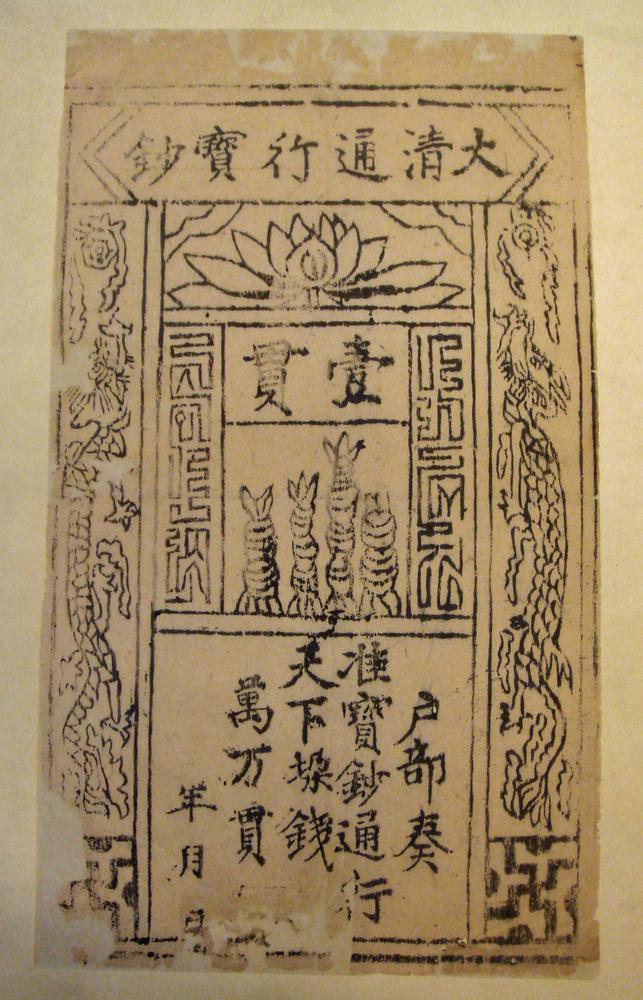 大清通行寶鈔
壹貫
户部奏
准寶鈔通行
天下垛錢
萬万貫
年月